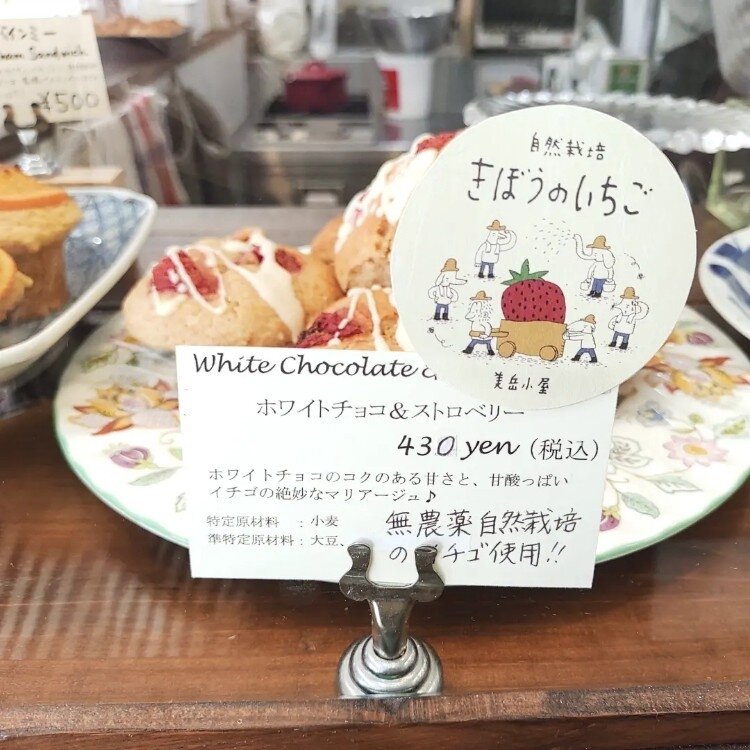 バインミー
Sandwich
¥500
自然栽培
きぼうのいちご
美岳小屋
White Chocolate &
ホワイトチョコ&ストロベリー
430 yen (税込)
ホワイトチョコのコクのある甘さと、甘酸っぱい
イチゴの絶妙なマリアージュ♪
特定原材料 : 小麦
準特定原材料 : 大豆、
無農薬自然栽培
のイチゴ使用!!